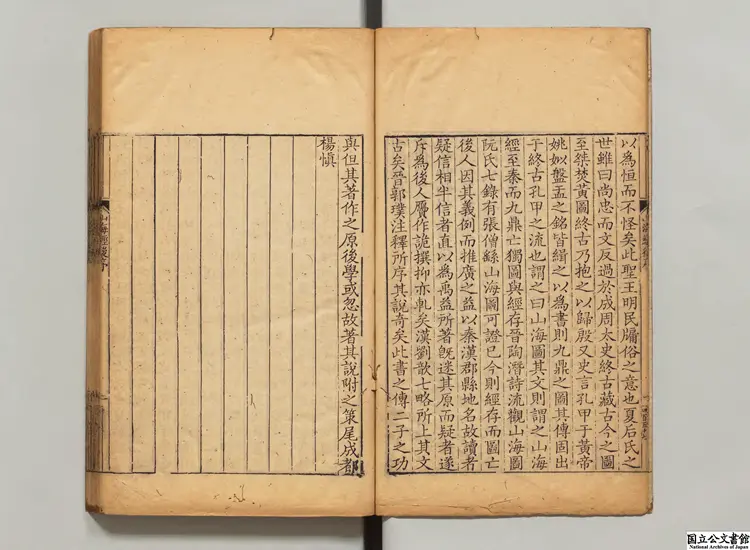 以為恒而不怪矣此聖王明民牖俗之意也夏后氏之
世雖曰尚忠而文反過於成周太史終古藏古今之圖
至桀焚黃圖終古乃抱之以歸殷又史言孔甲于黃帝
姚姒盤盂之銘皆緝之以為書則九鼎之圖其傳固出
于終古孔甲之流也謂之曰山海圖其文則謂之山海
經至秦而九鼎亡獨圖與經存晉陶潛詩流觀山海圖
阮氏七錄有張僧繇山海圖可證已今則經存而圖亡
後人因其義例而推廣之益以秦漢郡縣地名故讀者
疑信相半信者直以為禹益所著旣迷其原而疑者遂
斥為後人贗作詭撰抑亦軋矣漢劉歆七略所上其文
古矣晉郭璞注釋所序其說奇矣此書之傳二子之功
與但其著作之原後學或忽故著其說附之策尾成都
楊慎
山海經後序
国立公文書館
National Archives of Japan